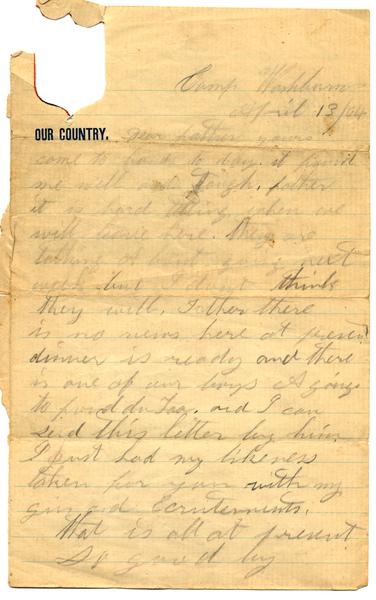 Camp Washburn
April 13/64
OUR COUNTRY.
Dear father yours
come to hand to day. it found
me well and tough. father
it is hard telling when we
will leave here. they are
talking about going next
week but I dont think
they will. Father there
is no news here at present
dinner is ready and there
is one of our boys A going
to fond du Lac. and I can
send this letter by him
I just had my likeness
taken for you with my
gun and Ecruterments.
that is all at present
So good by